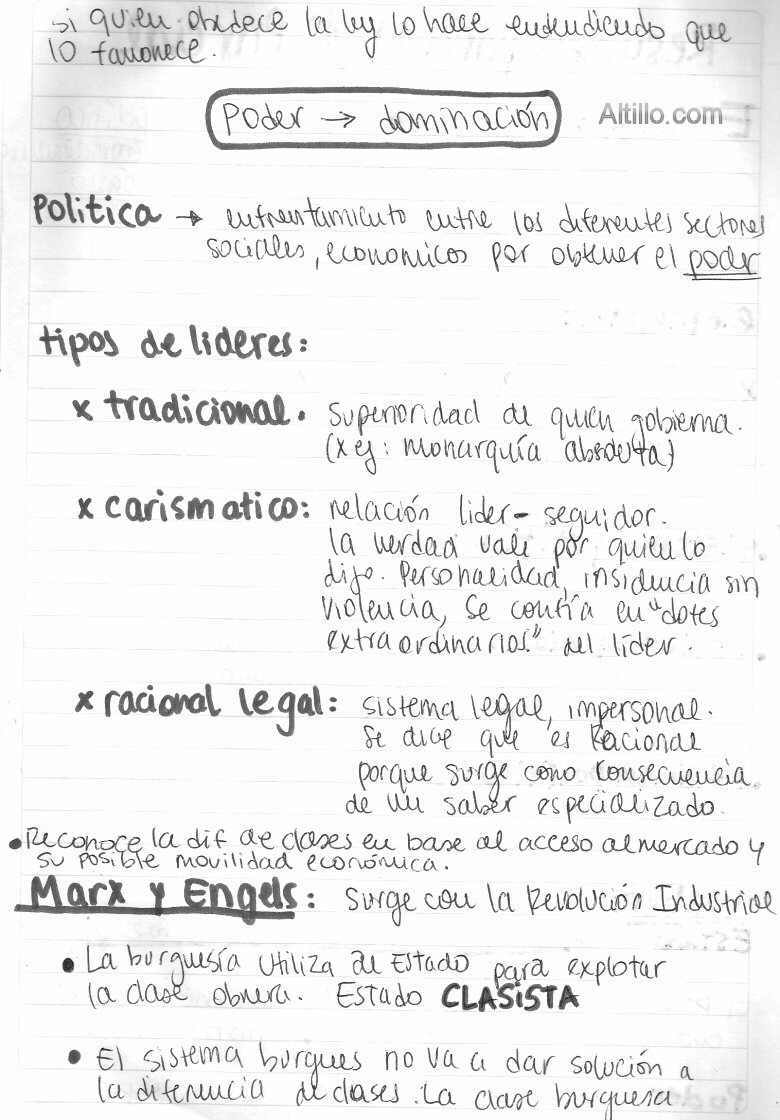 si quien obedece la ley lo hace entendiendo que
lo favorece.
Poder → dominación
Altillo.com
Politica → enfrentamiento entre los diferentes sectores
sociales, economicos por obtener el poder
tipos de lideres:
x tradicional. superioridad de quien gobierna.
(x ej: monarquía absoluta)
x carismatico: relación lider - seguidor.
la verdad vale por quien lo
dijo. Personalidad, insidencia sin
violencia, se confía en "dotes
extraordinarios" del líder.
x racional legal: sistema legal, impersonal.
Se dice que es Racional
porque surge como consecuencia
de un saber especializado.
• Reconoce la dif de clases en base al acceso al mercado y
su posible movilidad económica.
Marx y Engels: Surge con la Revolución Industrial
• La burguesía utiliza al Estado para explotar
la clase obrera. Estado CLASiSTA
• El sistema burgues no va a dar solución a
la diferencia de clases. La clase burguesa